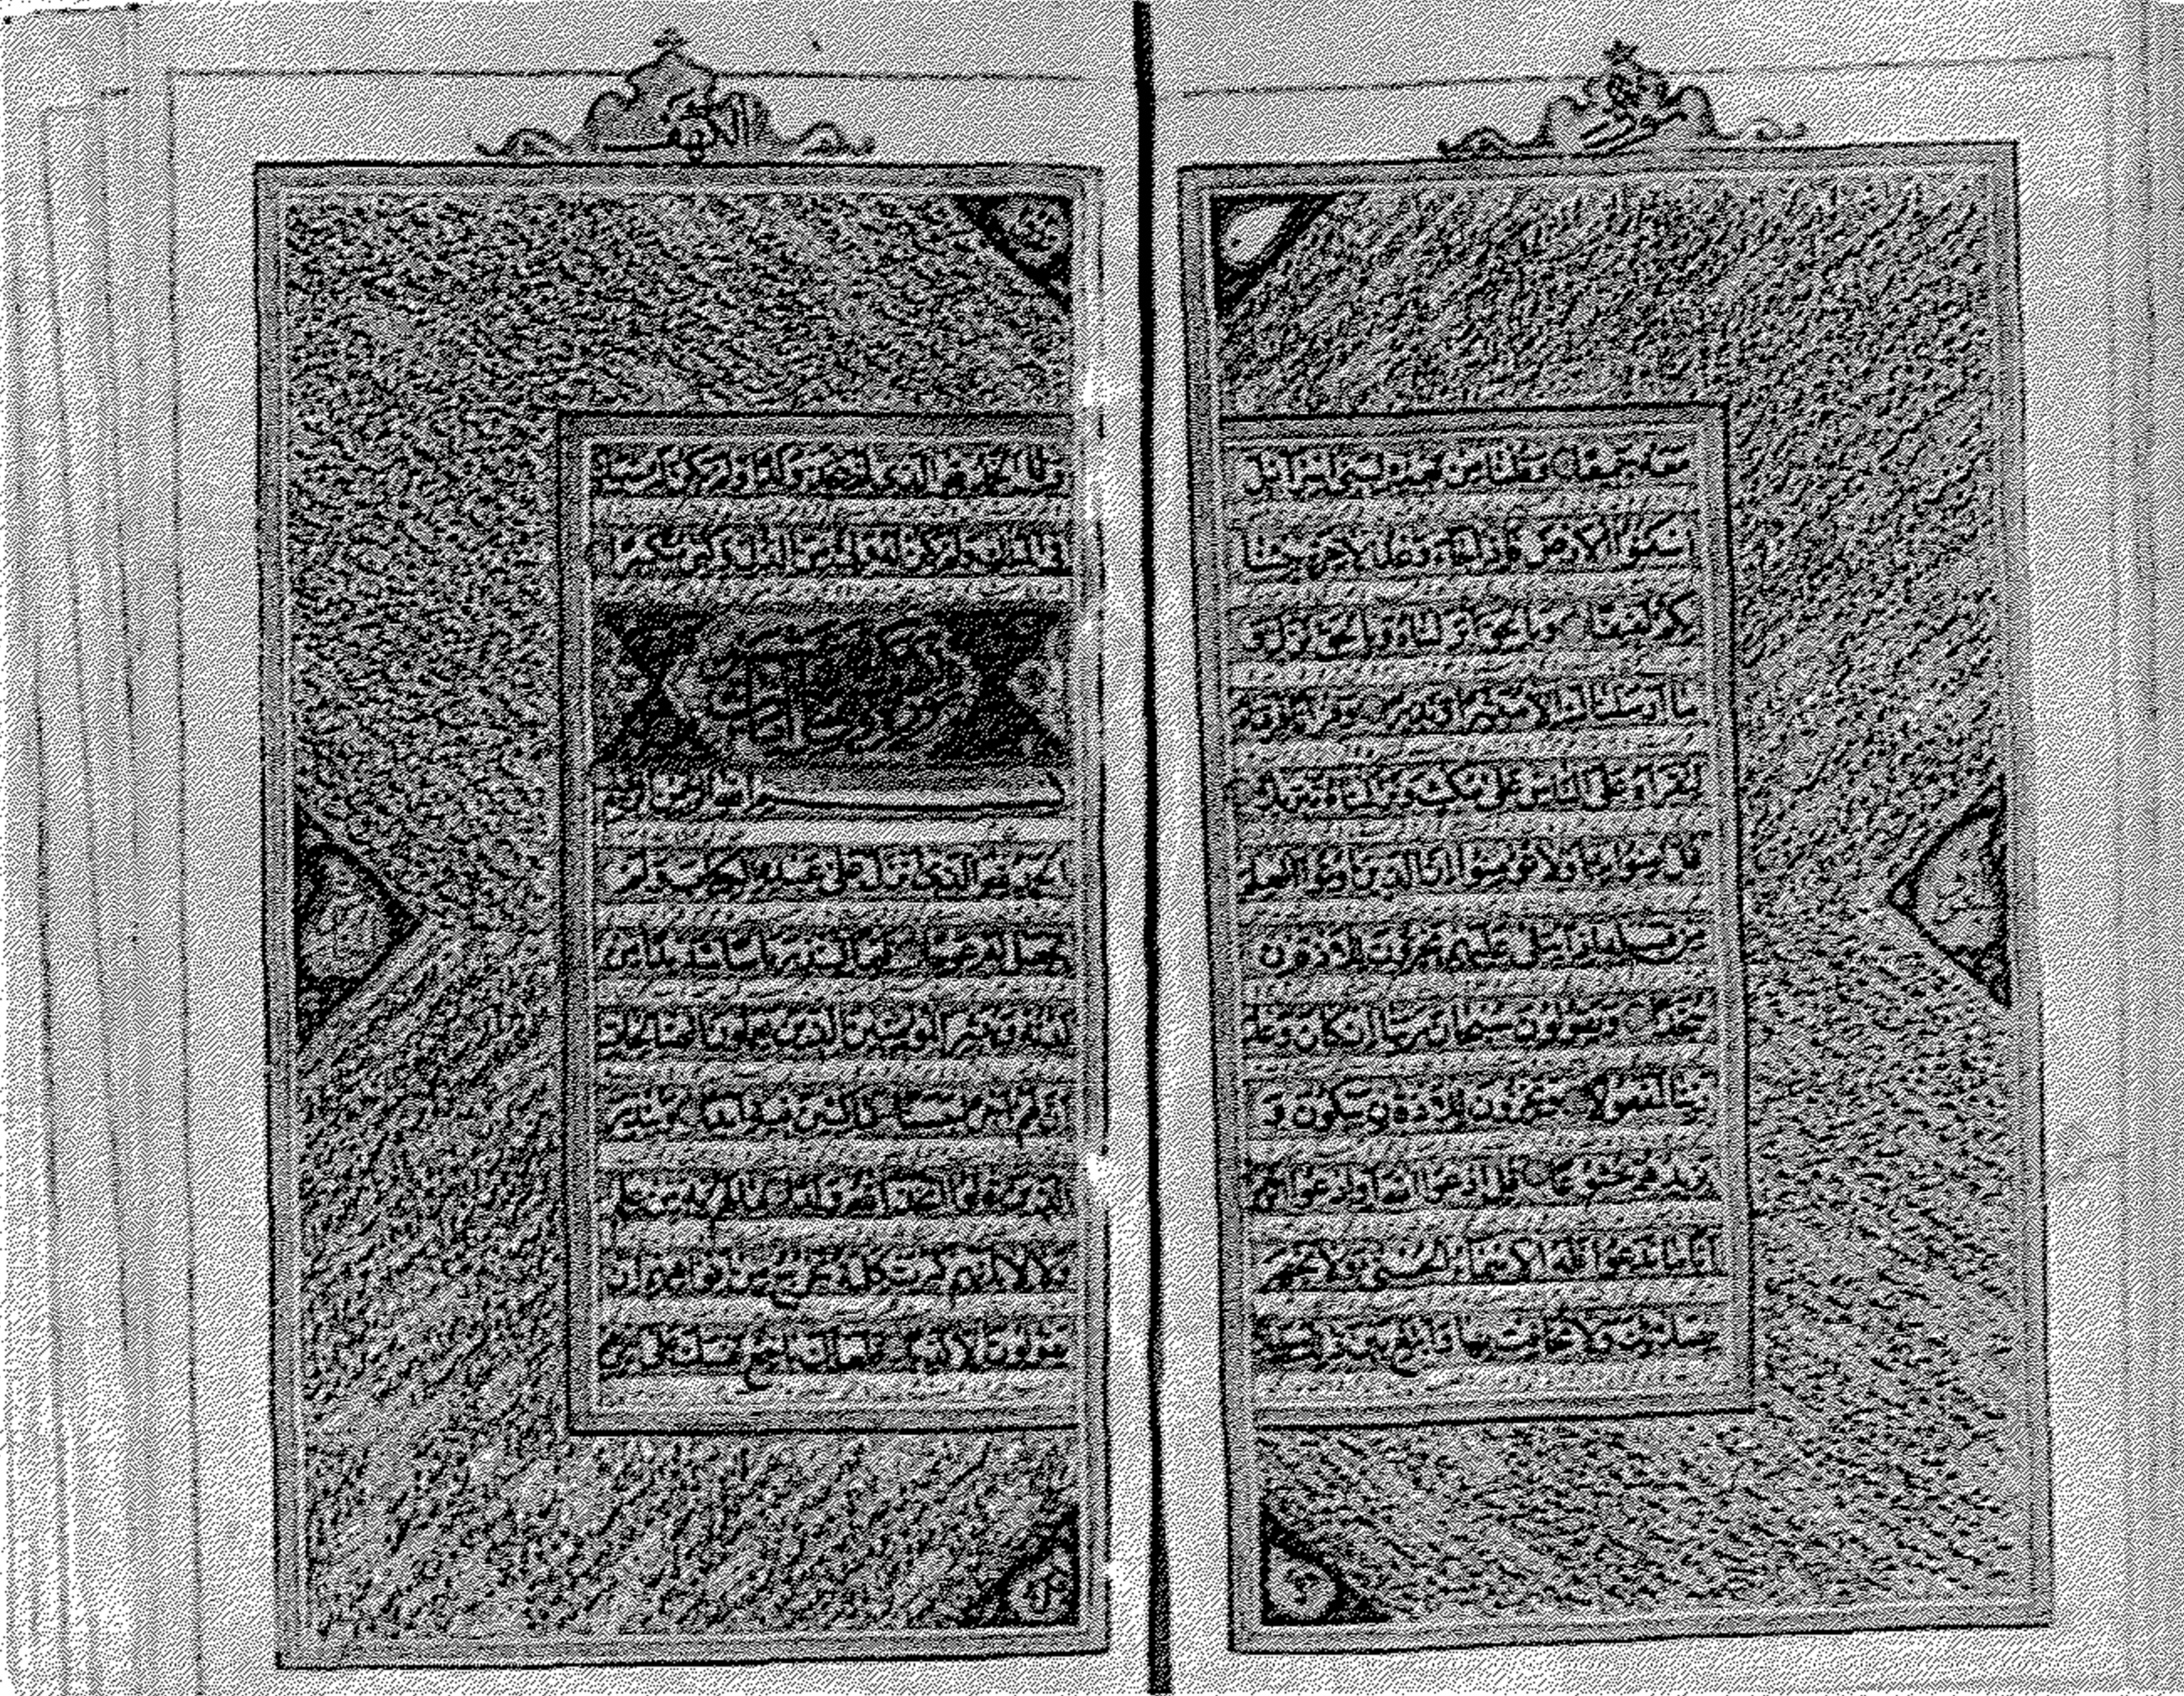 سورة
معه جميعا وقلنا من بعده لبنی اسرائیل
اسكنوا الارض فاذا جاء وعد الاخرة جئنا
بكم لفیفا و بالحق انزلناه و بالحق نزل و
ما ارسلناك الا مبشرا و نذیرا و قرانا فرقناه
لتقراه علی الناس علی مكث و نزلناه تنزیلا
قل امنوا به او لا تؤمنوا ان الذین اوتوا العلم
من قبله اذا یتلی علیهم یخرون للاذقان
سجدا و یقولون سبحان ربنا ان كان وعد
ربنا لمفعولا و یخرون للاذقان یبكون و
یزیدهم خشوعا قل ادعوا الله او ادعوا الرحمن
ایا ما تدعوا فله الاسماء الحسنی ولا تجهر
بصلوتك ولا تخافت بها وابتغ بین ذلك سبیلا
الكهف
و قل الحمد لله الذی لم یتخذ ولدا و لم یكن له شریك
فی الملك و لم یكن له ولی من الذل و كبره تكبیرا
بسم الله الرحمن الرحیم
الحمد لله الذی انزل علی عبده الكتاب و لم
یجعل له عوجا قیما لینذر باسا شدیدا من
لدنه و یبشر المؤمنین الذین یعملون الصالحات
ان لهم اجرا حسنا ماكثین فیه ابدا و ینذر
الذین قالوا اتخذ الله ولدا ما لهم به من علم
ولا لابائهم كبرت كلمة تخرج من افواههم ان
یقولون الا كذبا فلعلك باخع نفسك علی